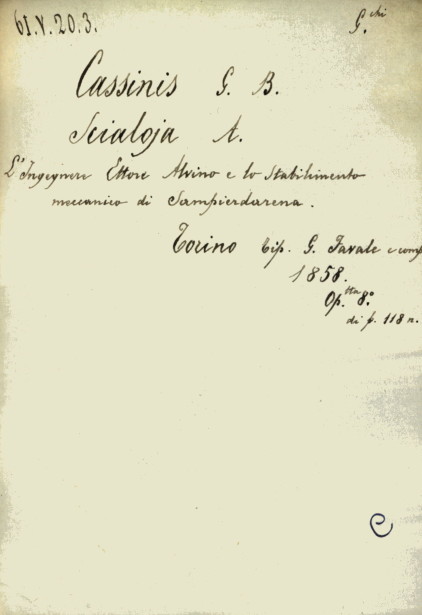 61.V.20.3. G.chi
Cassinis G. B.
Scialoja A.
L'Ingegnere Ettore Alvino e lo Stabilimento
meccanico di Sampierdarena.
Torino tip. G. Favale e comp
1858.
Op.tta 8°
di p. 118 n.
C